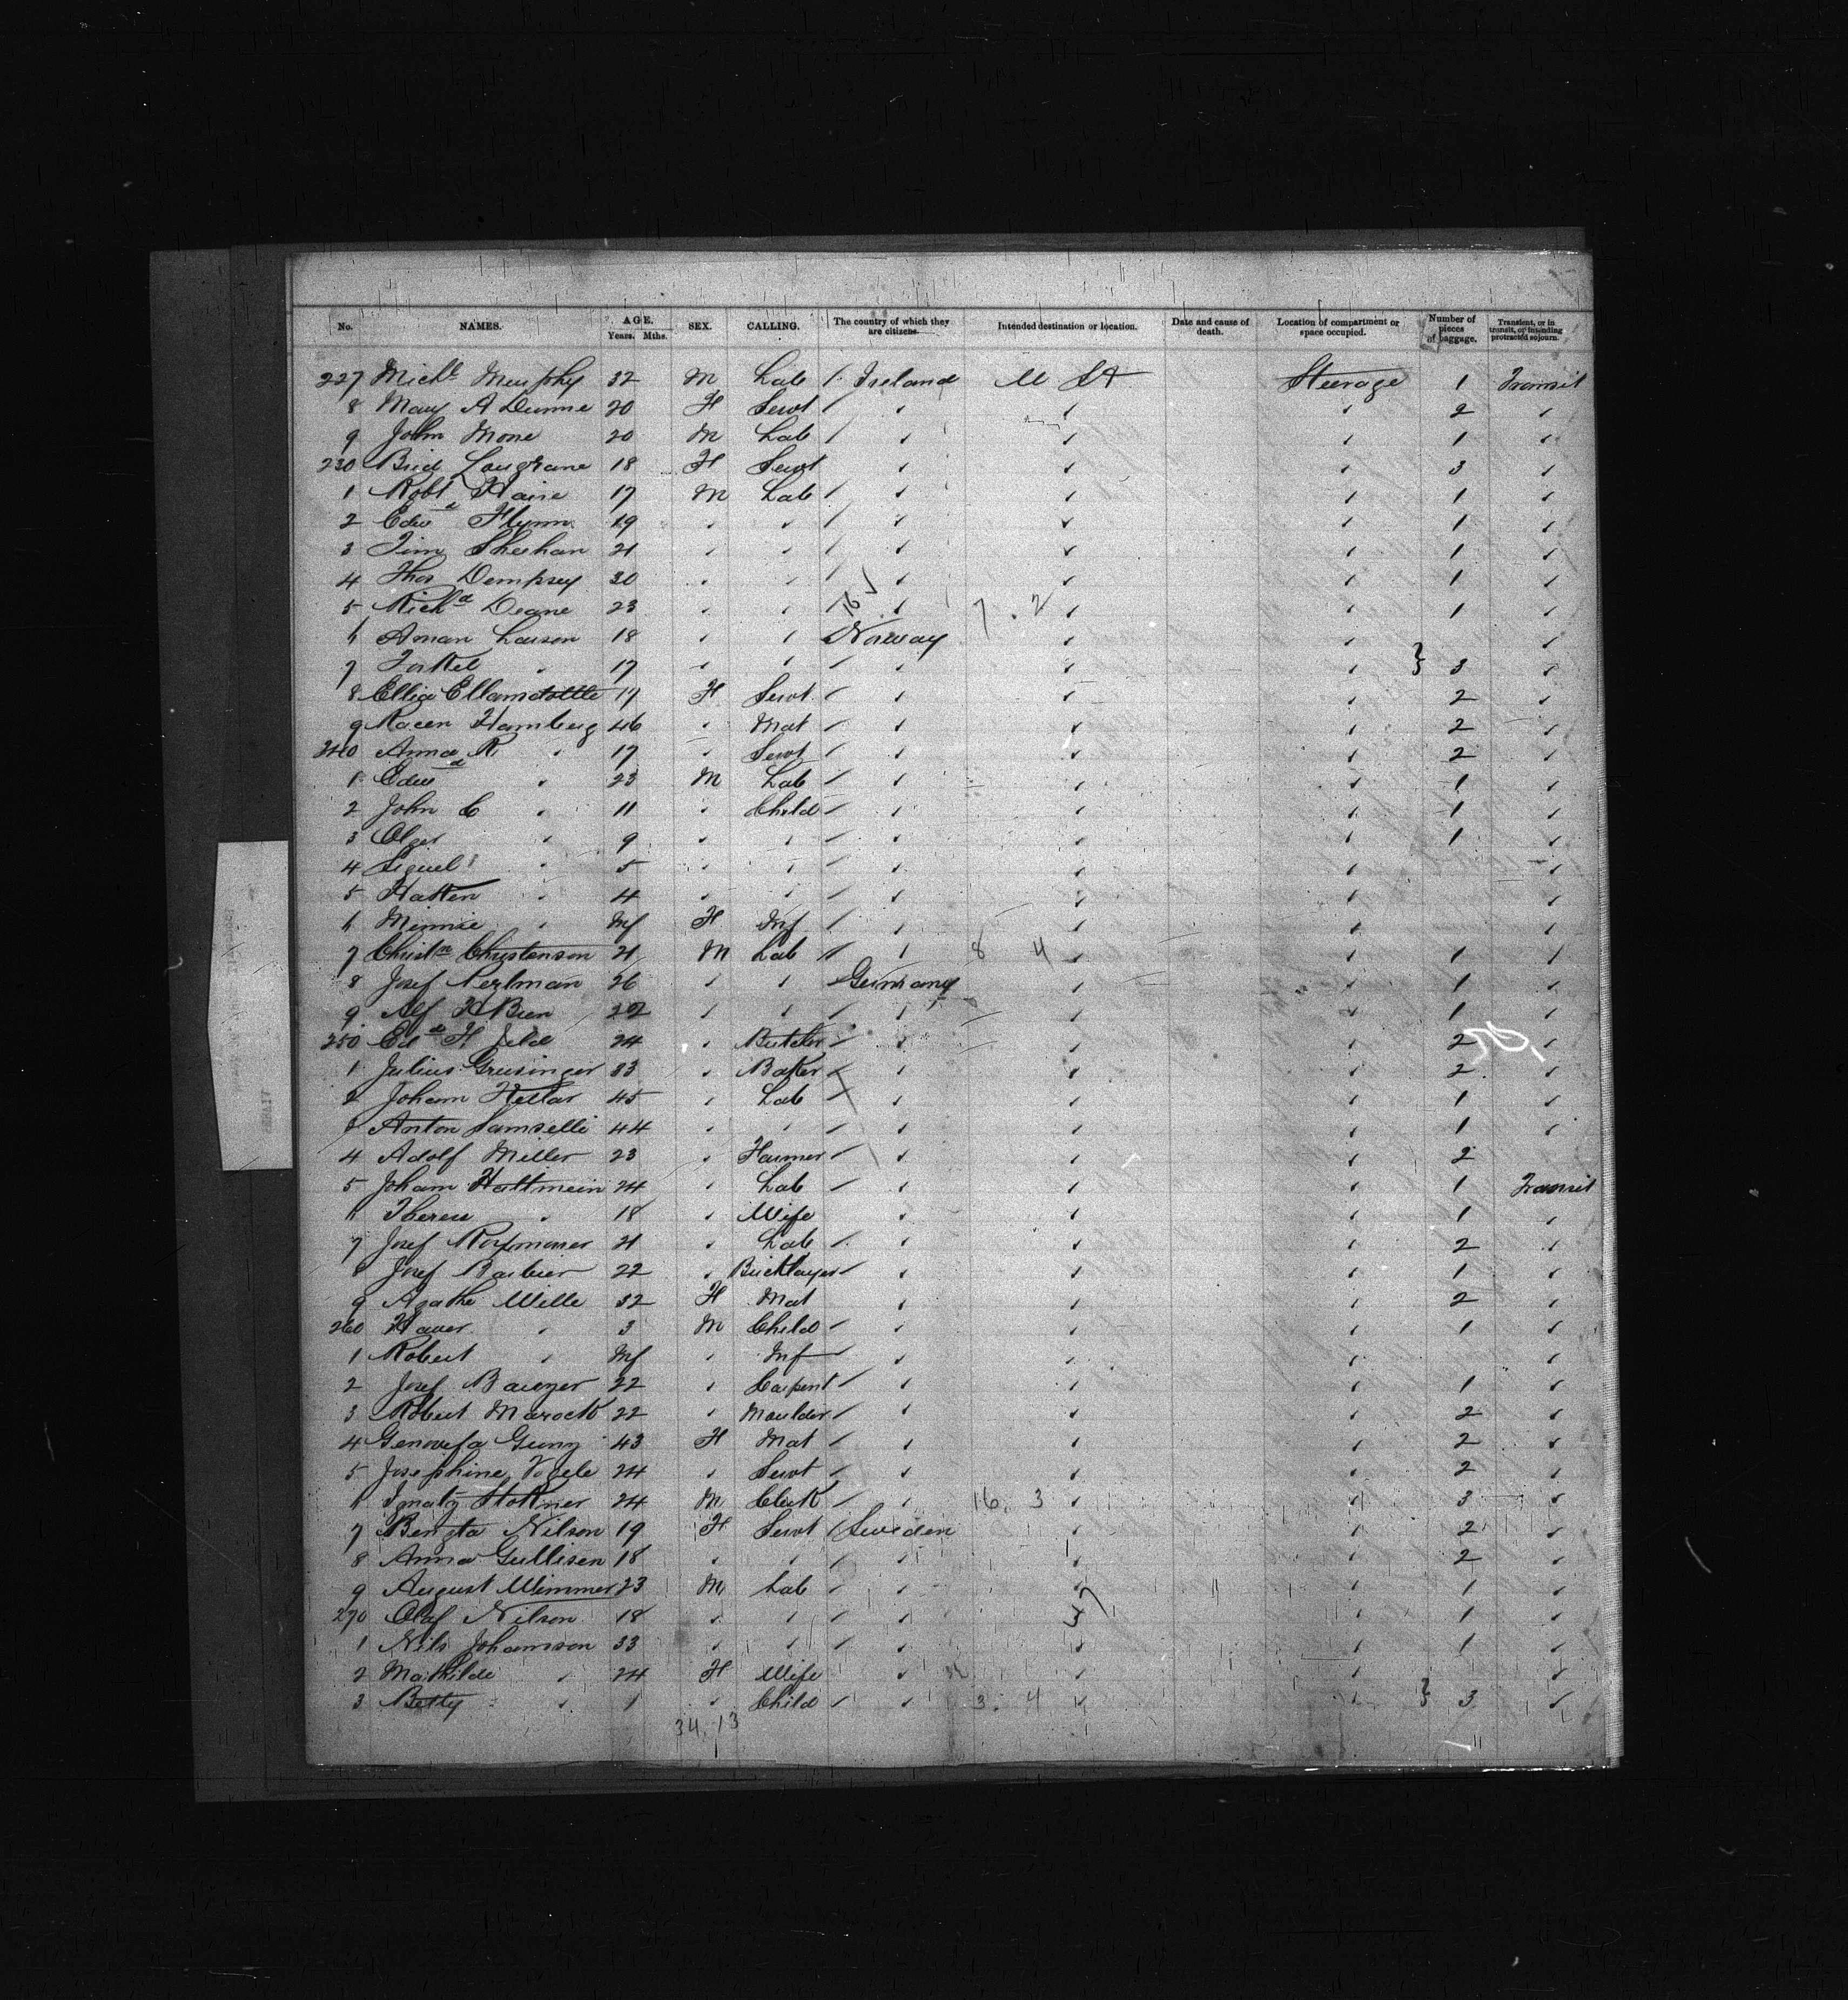 No. NAMES. AGE. Years. Mths. SEX. CALLING. The country of which they are citizens. Intended destination or location. Date and cause of death. Location of compartment or space occupied. Number of pieces of baggage. Transient, or in transit, or intending protracted sojourn.
227 Michl Murphy 32 M Lab Ireland U St Steerage 1 Transit
8 Mary A Dunne 20 F Servt 2
9 John Mone 20 M Lab 1
230 Brid Lougrane 18 F Servt 3
1 Robt Haire 17 M Lab 1
2 Edwd Flynn 19 1
3 Tim Sheehan 21 1
4 Thos Dempsey 30 1
5 Richd Deane 23 1
6 Aman Larson 18 Norway
7 Torkel 17 3
8 Ellice 17 F Servt 2
9 Hamberg 46 Mat 2
240 Anna R 17 Servt 2
1 Edwd 23 M Lab 1
2 John C 11 Child 1
3 Olger 9 1
4 5
5 Hatten 4
6 Minnie Inf F Inf
7 Christn Christenson 21 M Lab 8 4 1
8 Josef Perlman 26 Germany 1
9 Alf H Bien 22 1
250 Edd H 24 Butcher 2
1 Julius Grusinger 33 Baker 2
2 Joham Hellar 45 Lab 1
3 Anton Samselli 44 1
4 Adolf Miller 23 Farmer 2
5 Joham Hattmein 24 Lab 1 Transit
6 Theres 18 Wife 1
7 Josef 21 Lab 2
8 Josef Barbier 22 Bricklayer 1
9 Agathe Wille 32 F Mat 2
260 Xaver 3 M Child 1
1 Robert Inf Inf
2 Josef 22 Carpent 1
3 Robert Marock 22 Moulder 2
4 Genovefa 43 F Mat 2
5 Josephine Vogele 24 Servt 2
6 Ignatz 24 M Clerk 16. 3 3
7 Bengta Nilson 19 F Servt Sweden 2
8 Anna Gullisen 18 2
9 August Wimmer 23 M Lab 1
270 Olaf Nilson 18 1
1 Nils Johanson 33 1
2 Mathilde 24 F Wife
3 Betty 1 Child 3. 4 3
34. 13